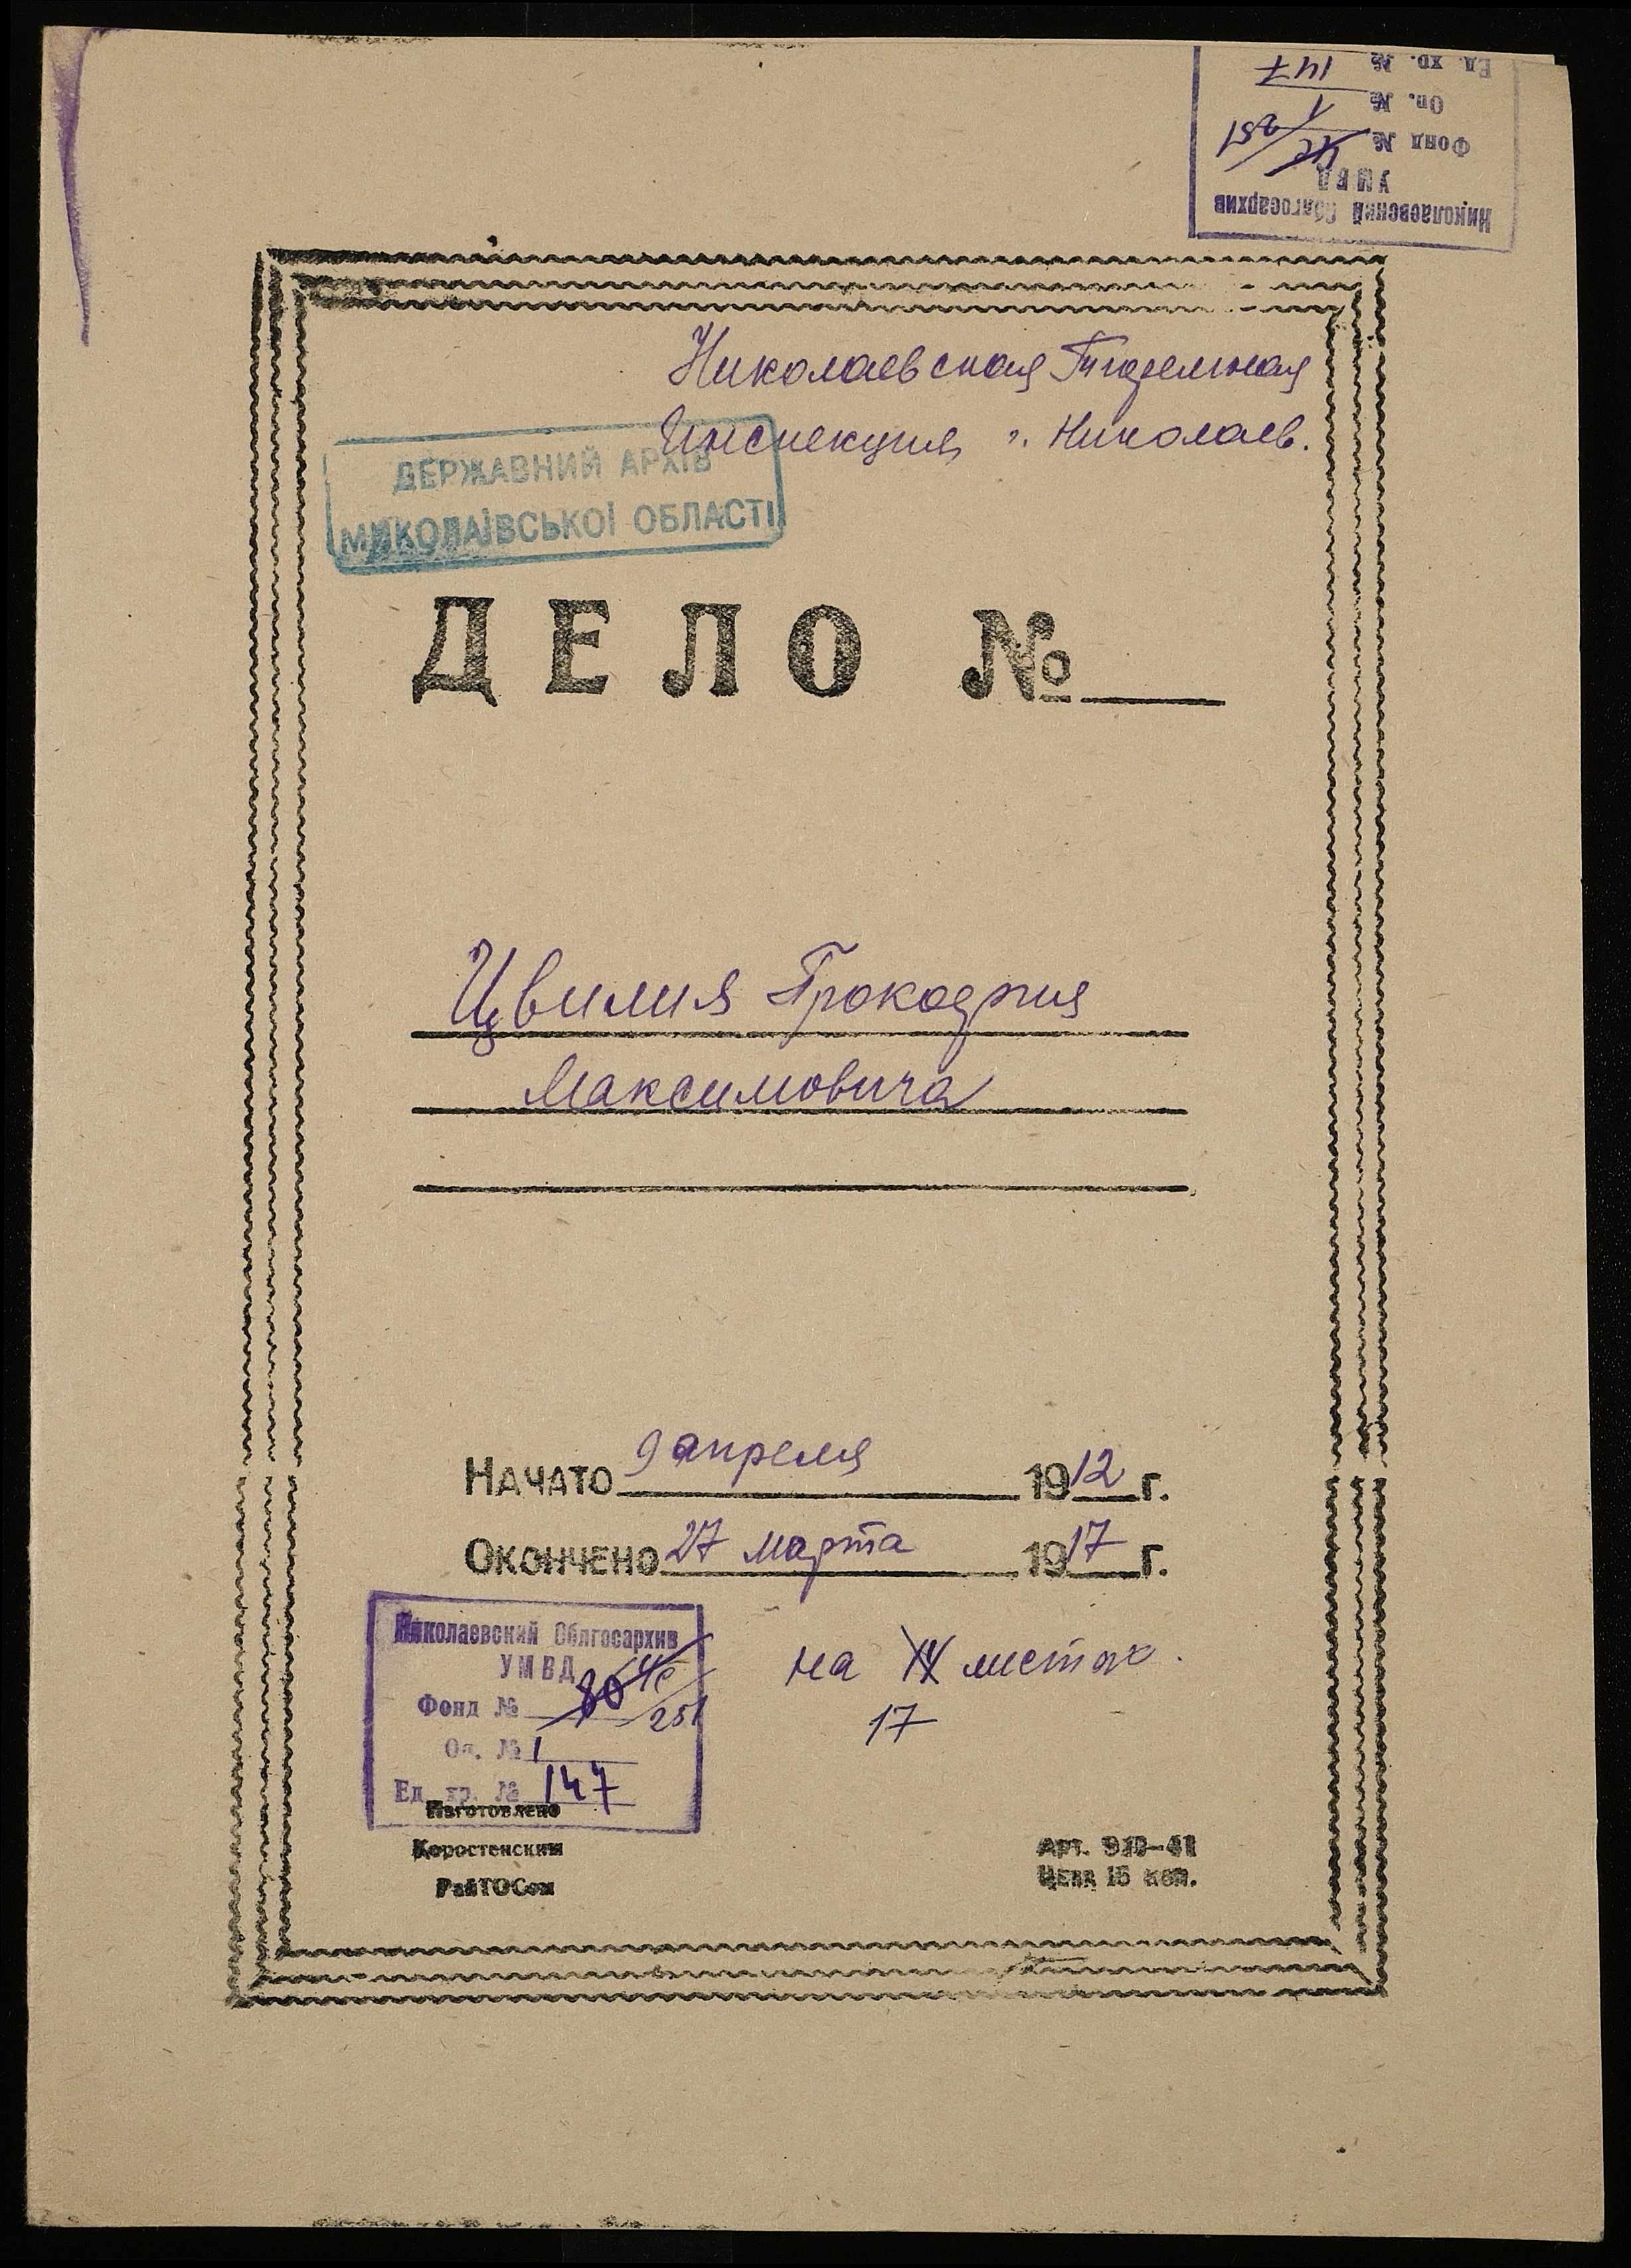 Николаевский Облгосархив
УМВД
Фонд № 251
Оп. № 1
Ед. хр. № 147
Николаевская Тюремная
Инспекция г. Николаев.
ДЕРЖАВНИЙ АРХІВ
МИКОЛАЇВСЬКОЇ ОБЛАСТІ
ДЕЛО №
Цвилия Прокофия
Максимовича
НАЧАТО 9 апреля 1912 г.
ОКОНЧЕНО 27 марта 1917 г.
на листах.
17
Николаевский Облгосархив
УМВД
Фонд № 251
Оп. № 1
Ед. хр. № 147
Изготовлено
Коростенским
РайТОСом
Арт. 910-41
Цена 15 коп.